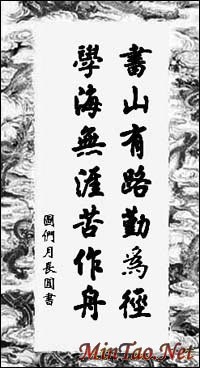 書山有路勤為徑
學海無涯苦作舟
國們月長圓書
MinTao.Net